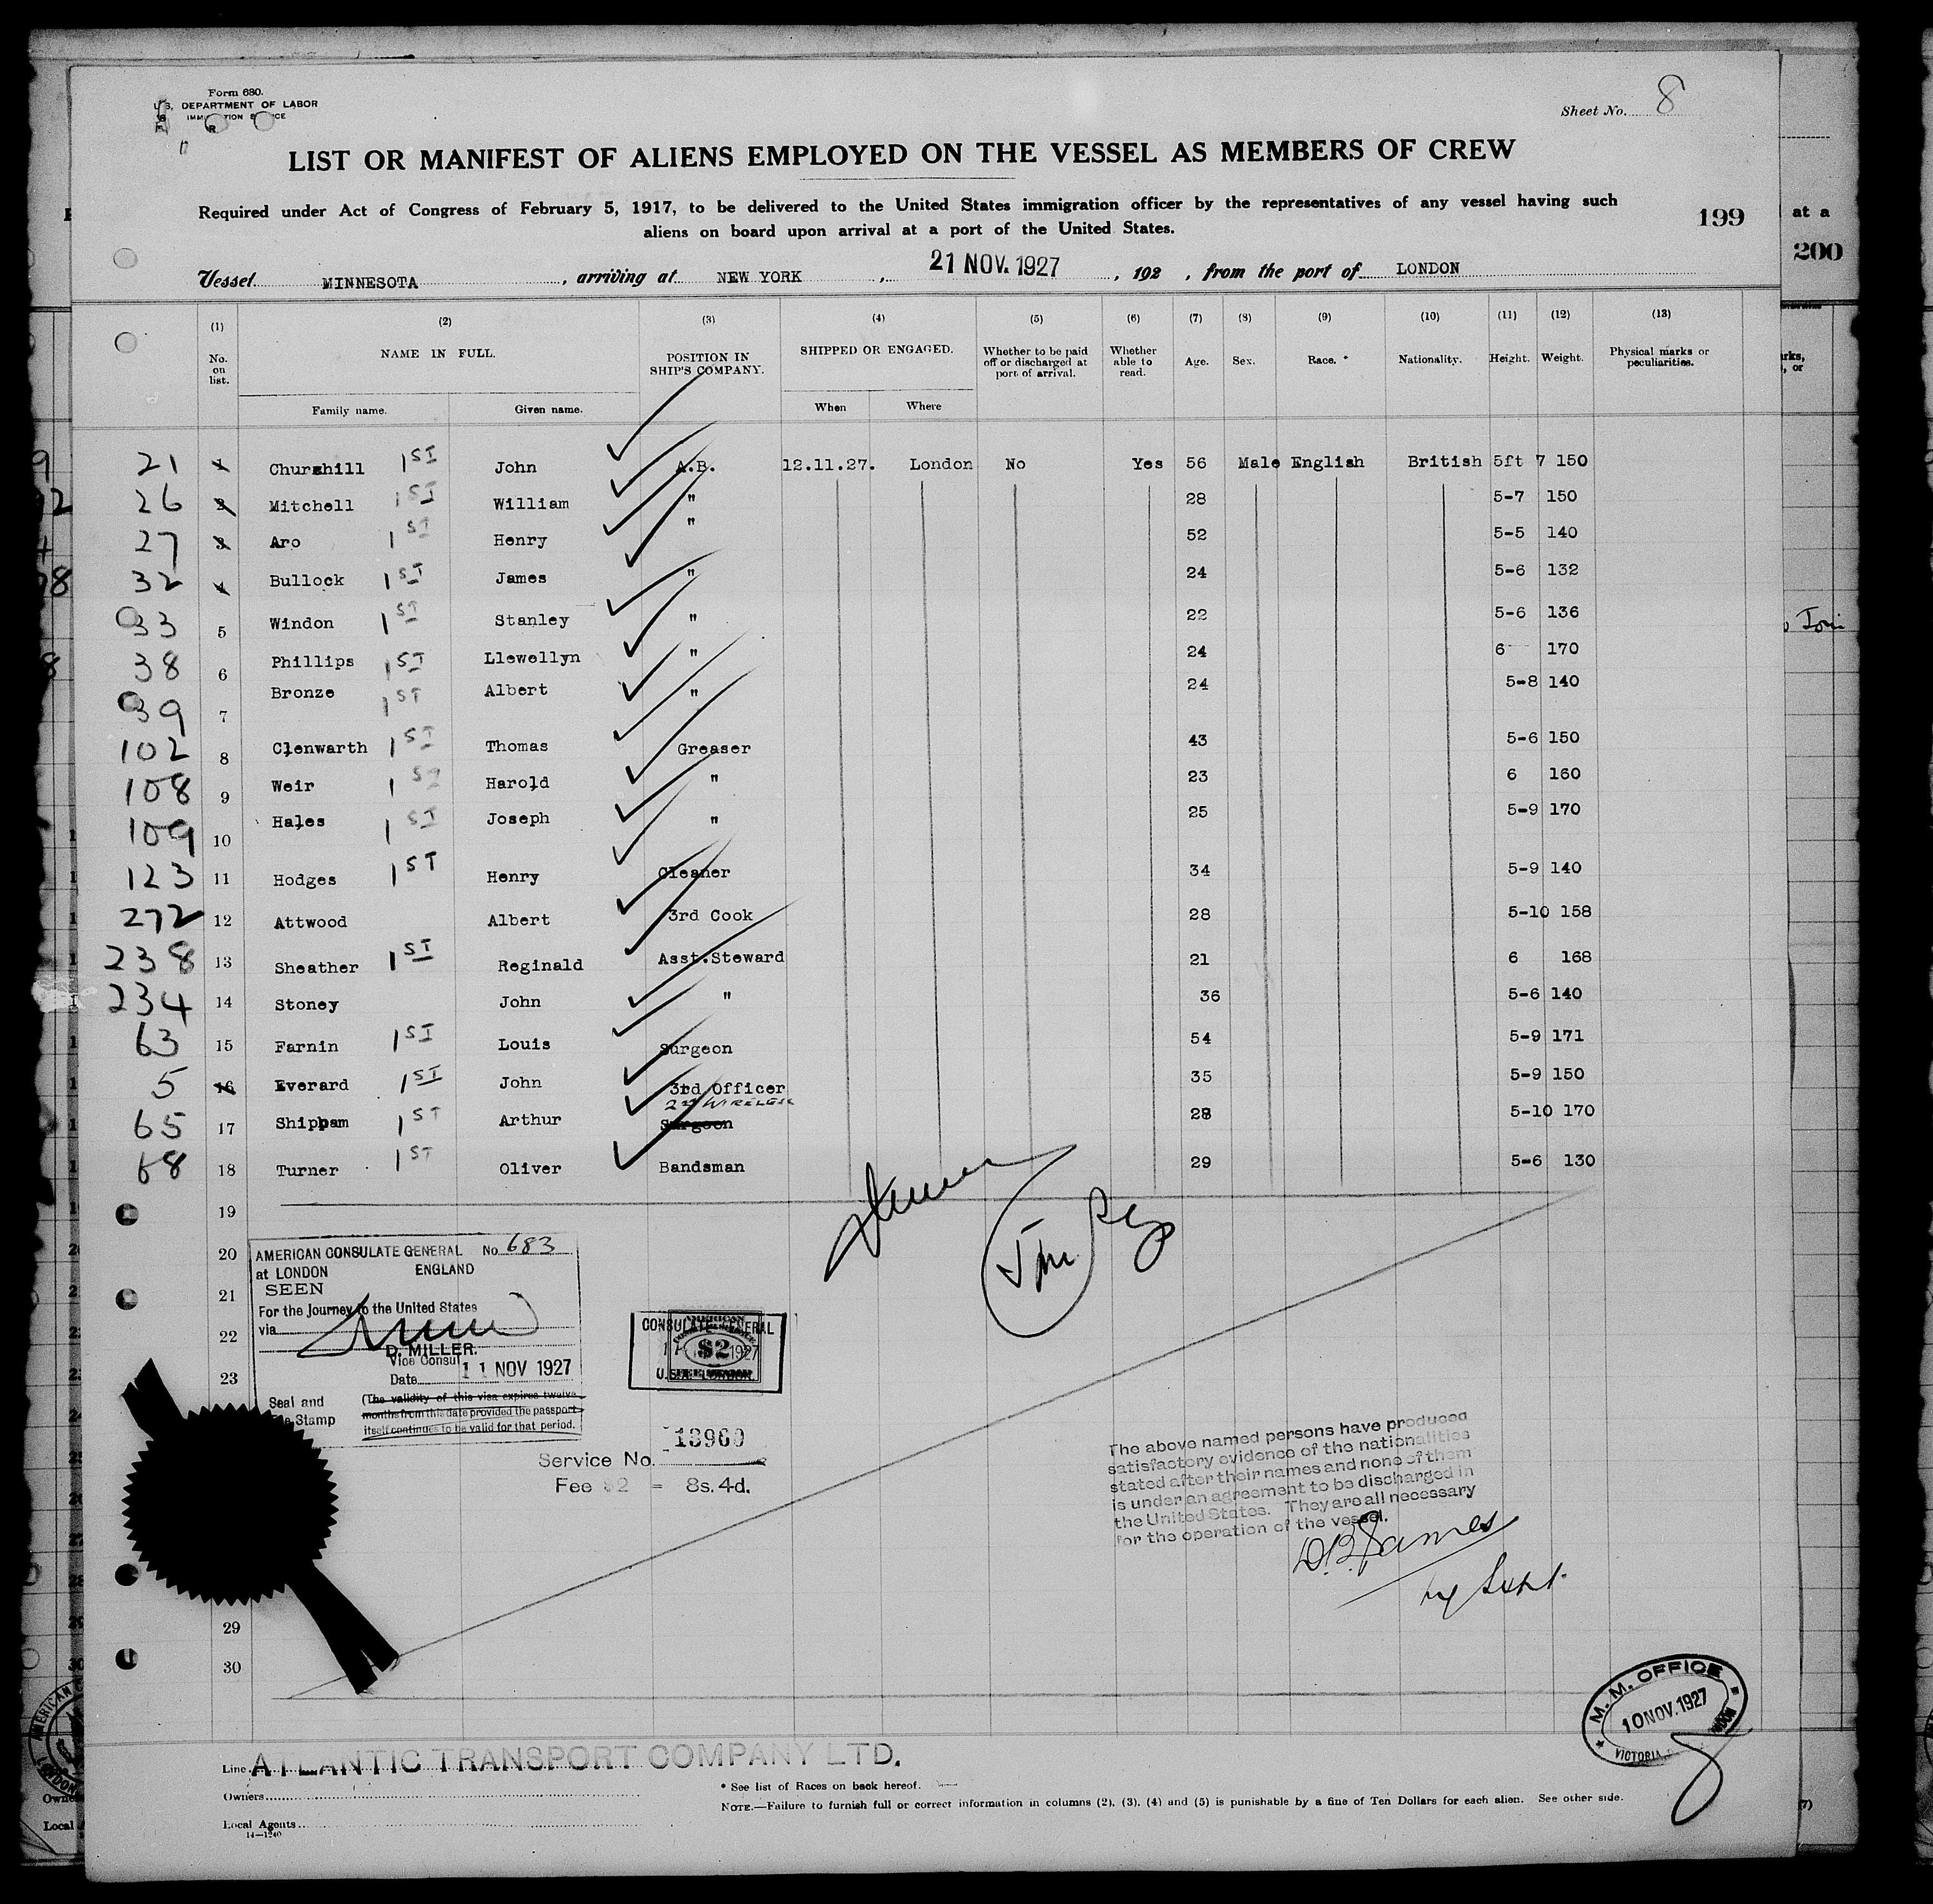 Form 680.
U.S. DEPARTMENT OF LABOR
Sheet No. 8
LIST OR MANIFEST OF ALIENS EMPLOYED ON THE VESSEL AS MEMBERS OF CREW
Required under Act of Congress of February 5, 1917, to be delivered to the United States immigration officer by the representatives of any vessel having such
aliens on board upon arrival at a port of the United States.
199
at a
200
Vessel MINNESOTA , arriving at NEW YORK , 21 NOV. 1927 , 192 , from the port of LONDON
(1) (2) (3) (4) (5) (6) (7) (8) (9) (10) (11) (12) (13)
No. on list. NAME IN FULL. POSITION IN SHIP'S COMPANY. SHIPPED OR ENGAGED. Whether to be paid off or discharged at port of arrival. Whether able to read. Age. Sex. Race. * Nationality. Height. Weight. Physical marks or peculiarities.
Family name. Given name. When Where
21 1 Churchill 1ST John A.B. 12.11.27. London No Yes 56 Male English British 5ft 7 150
26 2 Mitchell 1ST William " 28 5-7 150
27 3 Aro 1ST Henry " 52 5-5 140
32 4 Bullock 1ST James " 24 5-6 132
33 5 Windon 1ST Stanley " 22 5-6 136
38 6 Phillips 1ST Llewellyn " 24 6 170
39 7 Bronze 1ST Albert " 24 5-8 140
102 8 Clenwarth 1ST Thomas Greaser 43 5-6 150
108 9 Weir 1ST Harold " 23 6 160
109 10 Hales 1ST Joseph " 25 5-9 170
123 11 Hodges 1ST Henry Cleaner 34 5-9 140
272 12 Attwood Albert 3rd Cook 28 5-10 158
238 13 Sheather 1ST Reginald Asst.Steward 21 6 168
234 14 Stoney John " 36 5-6 140
63 15 Farnin 1ST Louis Surgeon 54 5-9 171
5 16 Everard 1ST John 3rd Officer 35 5-9 150
65 17 Shippam 1ST Arthur 2nd WIRELESS Surgeon 28 5-10 170
68 18 Turner 1ST Oliver Bandsman 29 5-6 130
19
20
21
22
23
29
30
AMERICAN CONSULATE GENERAL No. 683
at LONDON ENGLAND
SEEN
For the Journey to the United States
via
D. MILLER.
Vice Consul
Date 11 NOV 1927
Seal and
Stamp
(The validity of this visa expires twelve
months from this date provided the passport
itself continues to be valid for that period.
$2
Service No. 13960
Fee $2 = 8s. 4d.
The above named persons have produced
satisfactory evidence of the nationalities
stated after their names and none of them
is under an agreement to be discharged in
the United States. They are all necessary
for the operation of the vessel.
D.B. James
M. M. OFFICE
10 NOV. 1927
VICTORIA
Line ATLANTIC TRANSPORT COMPANY LTD.
Owners
Local Agents
14—1240
* See list of Races on back hereof.
NOTE.—Failure to furnish full or correct information in columns (2), (3), (4) and (5) is punishable by a fine of Ten Dollars for each alien. See other side.